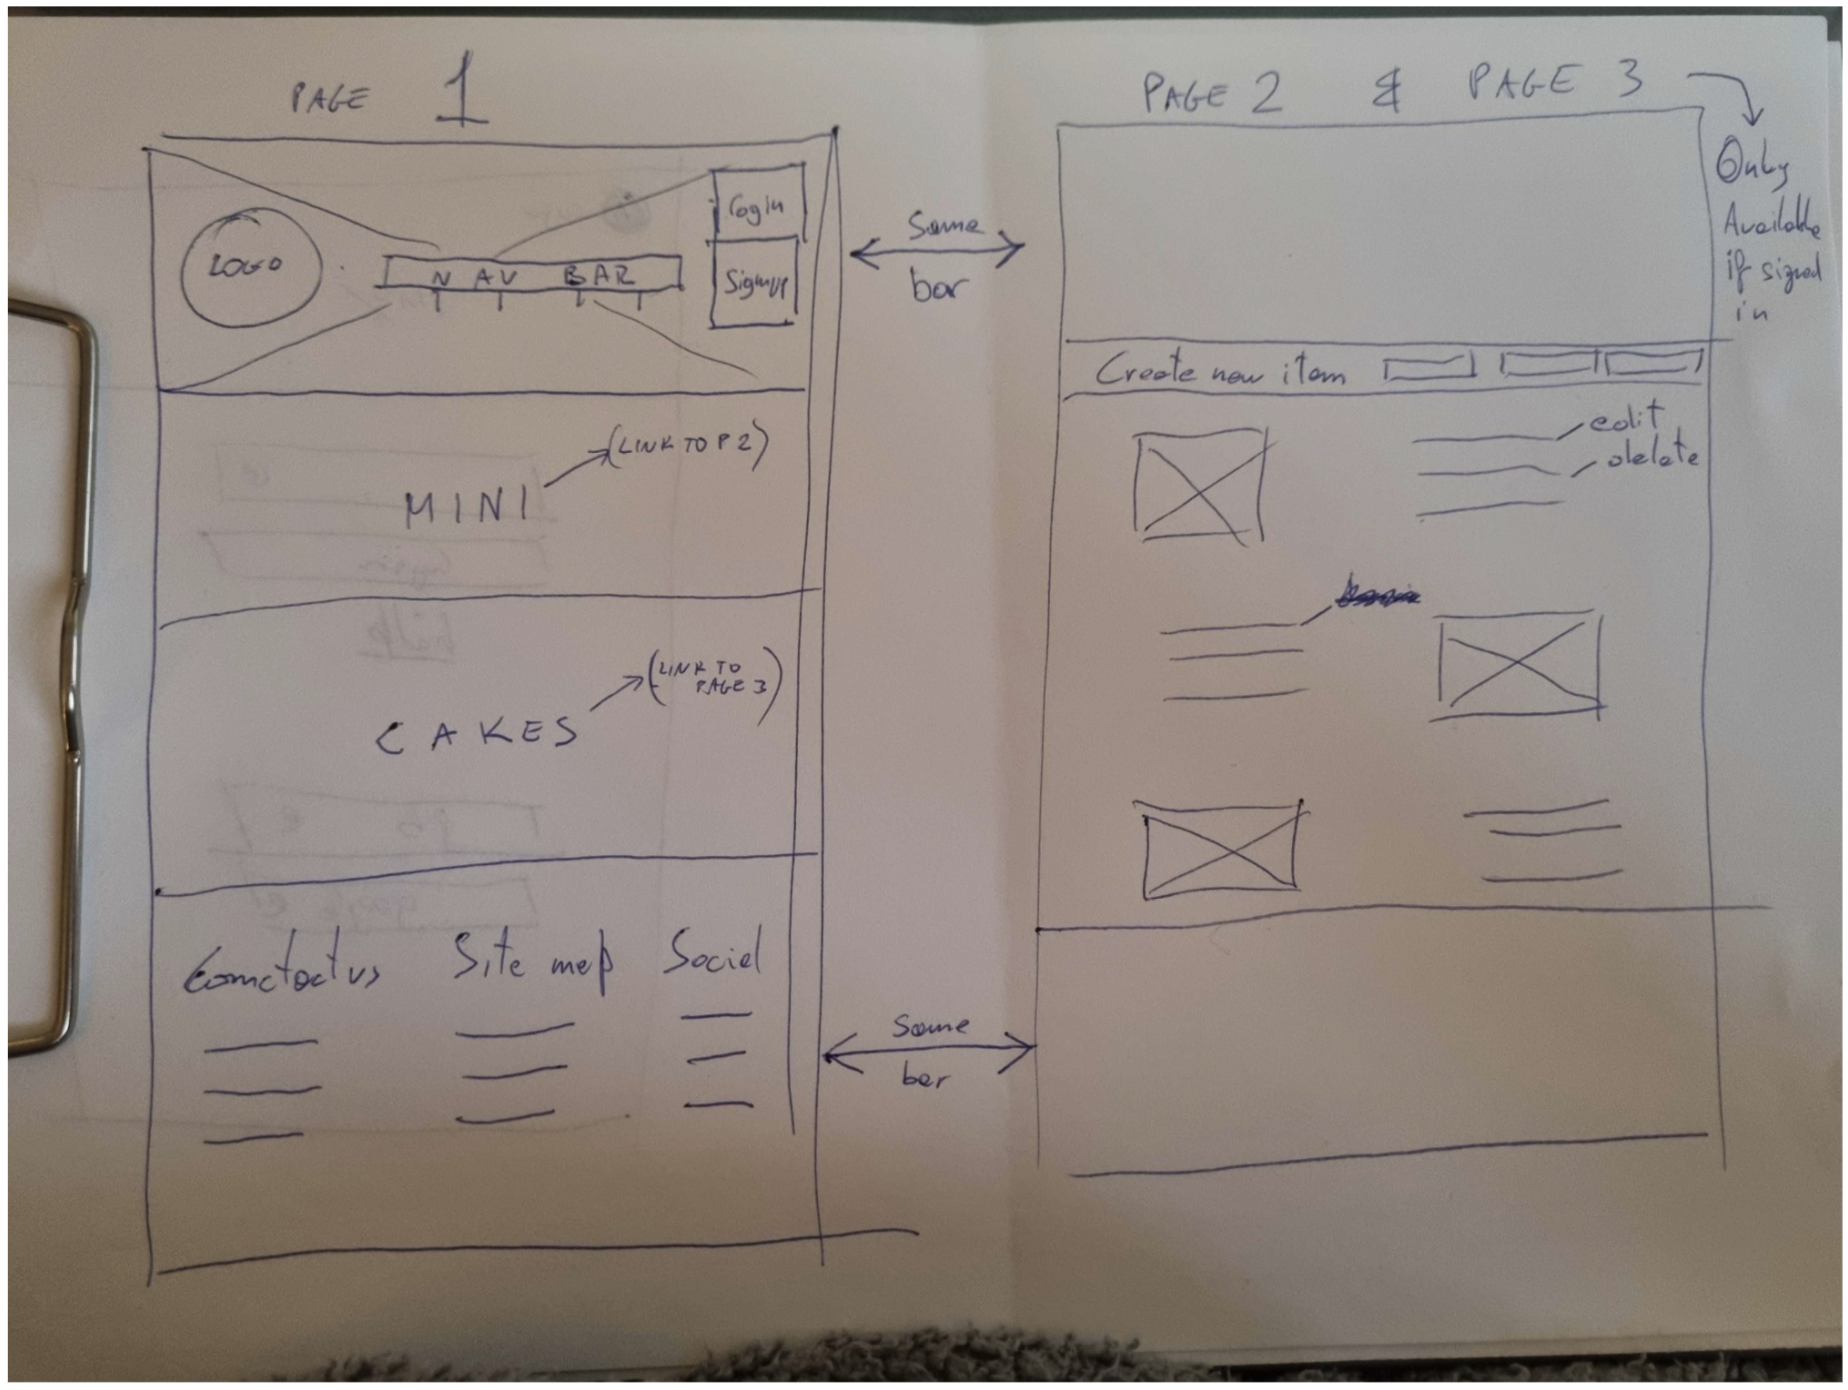 PAGE 1
LOGO
NAV BAR
Login
Signup
MINI
(LINK TO P2)
CAKES
(LINK TO
PAGE 3)
Contact us
Site map
Social
Same
bar
Same
bar
PAGE 2 & PAGE 3
Only
Available
if signed
in
Create new item
edit
delete